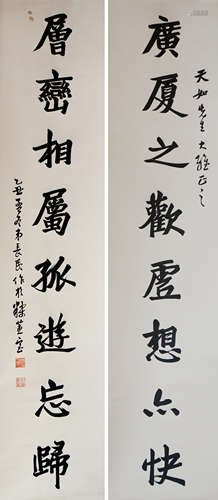 廣厦之歡虛想亦快
天如先生大雅正之
層巒相屬孤遊忘歸
乙丑孟冬弟長民作於